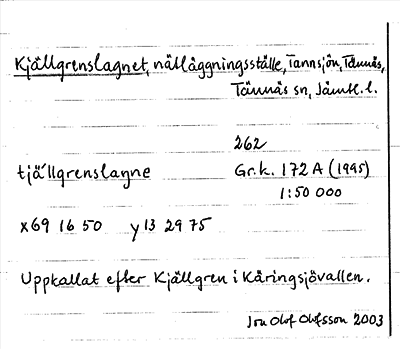 Kjällgrenslagnet, nätläggningsställe, Tannsjön, Tännäs,
Tännäs sn, Jämtl. l.
262
tjä´llgrenslaṇne Gr.k. 172 A (1995)
1:50 000
x 69 16 50 y 13 29 75
Uppkallat efter Kjällgren i Käringsjövallen.
Jon Olof Olofsson 2003